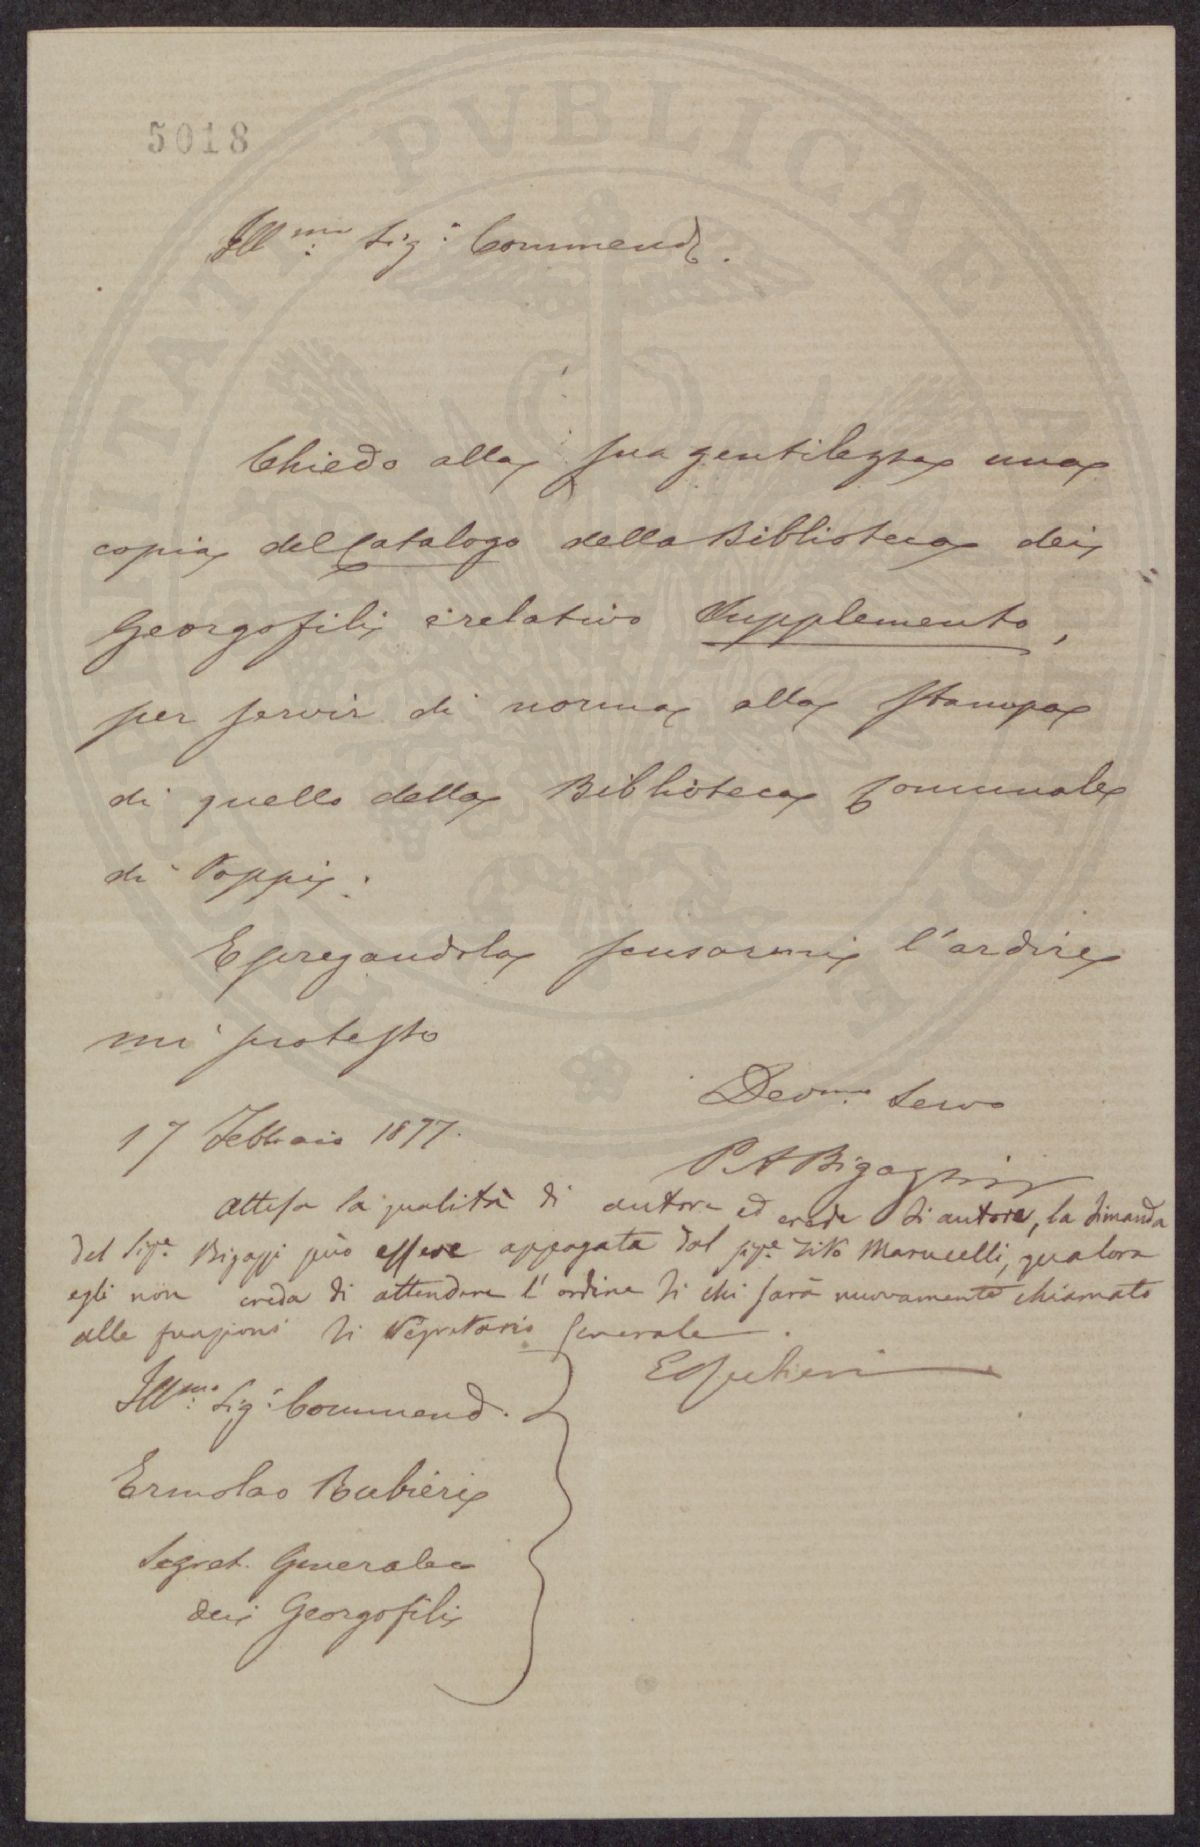 5018
Ill.mo Sig.r Commend.
Chiedo alla sua gentilezza una
copia del Catalogo della Biblioteca dei
Georgofili e relativo Supplemento,
per servir di norma alla stampa
di quello della Biblioteca Comunale
di Poppi.
E pregandola scusarmi l'ardire
mi protesto
Dev.mo Servo
17 Febbraio 1877.
P. A Bigazzi
Attesa la qualità di autore ed erede di autore, la dimanda
del Sig.e Bigazzi può essere appagata dal sig.e Tito Marucelli, qualora
egli non creda di attendere l'ordine di chi sarà nuovamente chiamato
alle funzioni di Segretario Generale.
Ill.mo Sig.r Commend.
Ermolao Rubieri
Segret. Generale
dei Georgofili